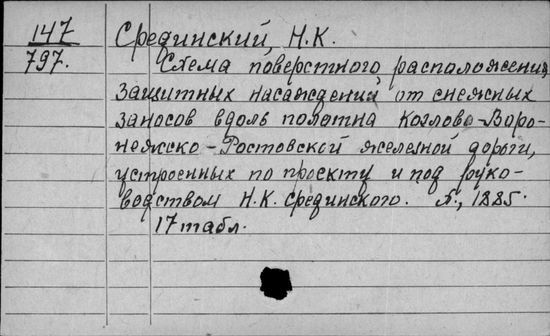 147
797.
Срединский, Н.К.
Схема поверстного расположения
защитных насаждений от снежных
заносов вдоль полотна Козлово-Воро-
нежско-Ростовской железной дороги,
устроенных по проекту и под руко-
водством Н.К. Срединского. П., 1885.
17 табл.